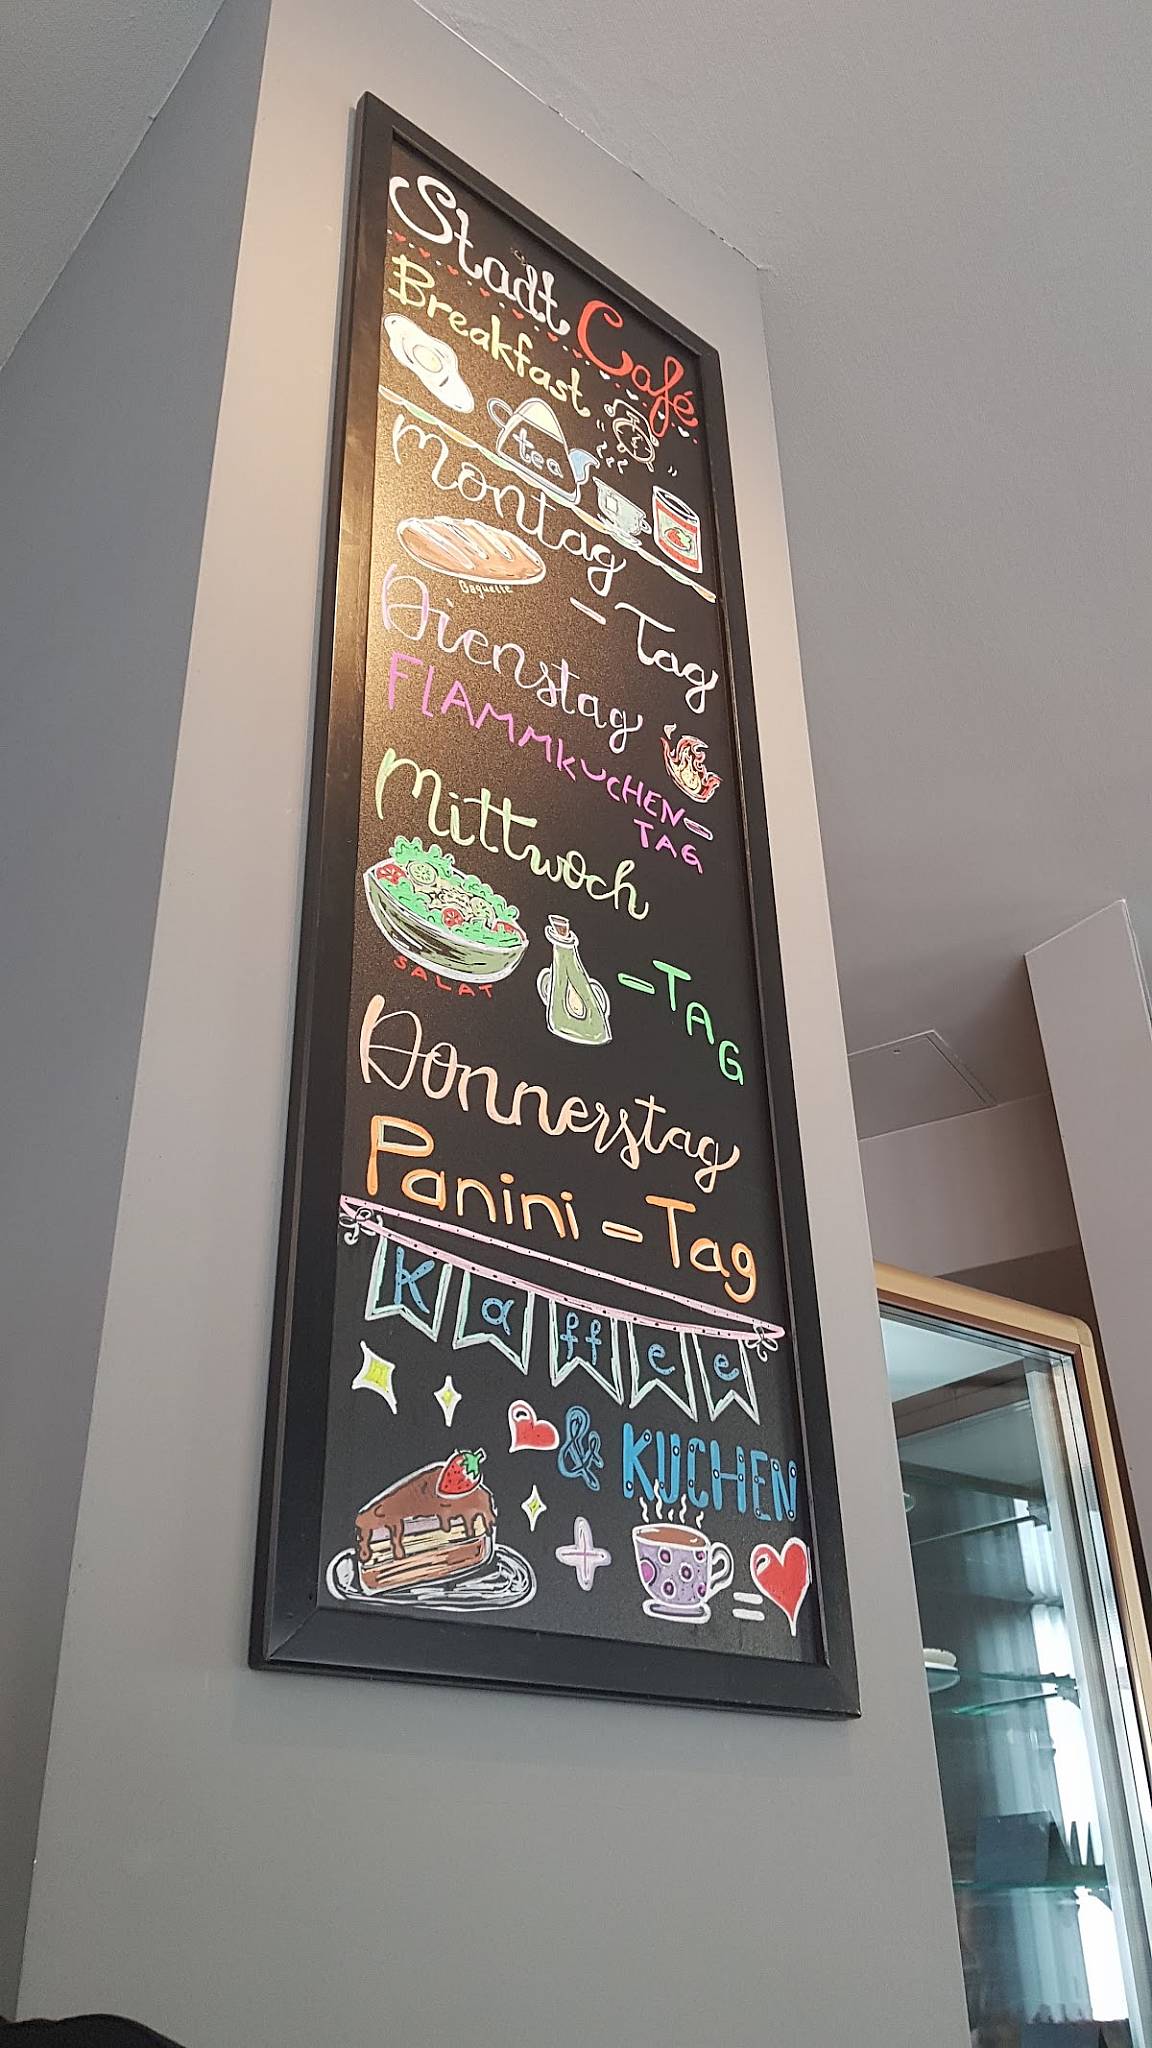 Stadt Café
Breakfast
tea
Montag
Baguette
- Tag
Dienstag
FLAMMKUCHEN-
TAG
Mittwoch
SALAT
- TAG
Donnerstag
Panini - Tag
Kaffee
& KUCHEN
+ =